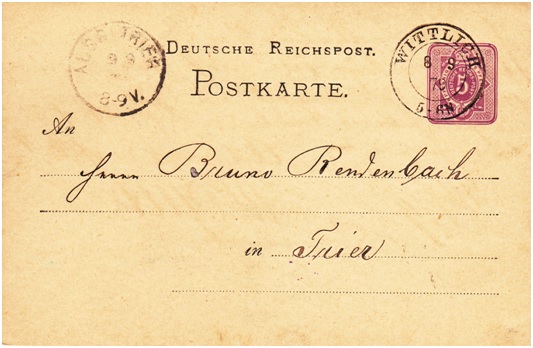 AUSG. TRIER
9 9
8-9V.
DEUTSCHE REICHSPOST.
POSTKARTE.
WITTLICH
8 9
79
5-6N
5
An
Herrn Bruno Rendenbach
in Trier